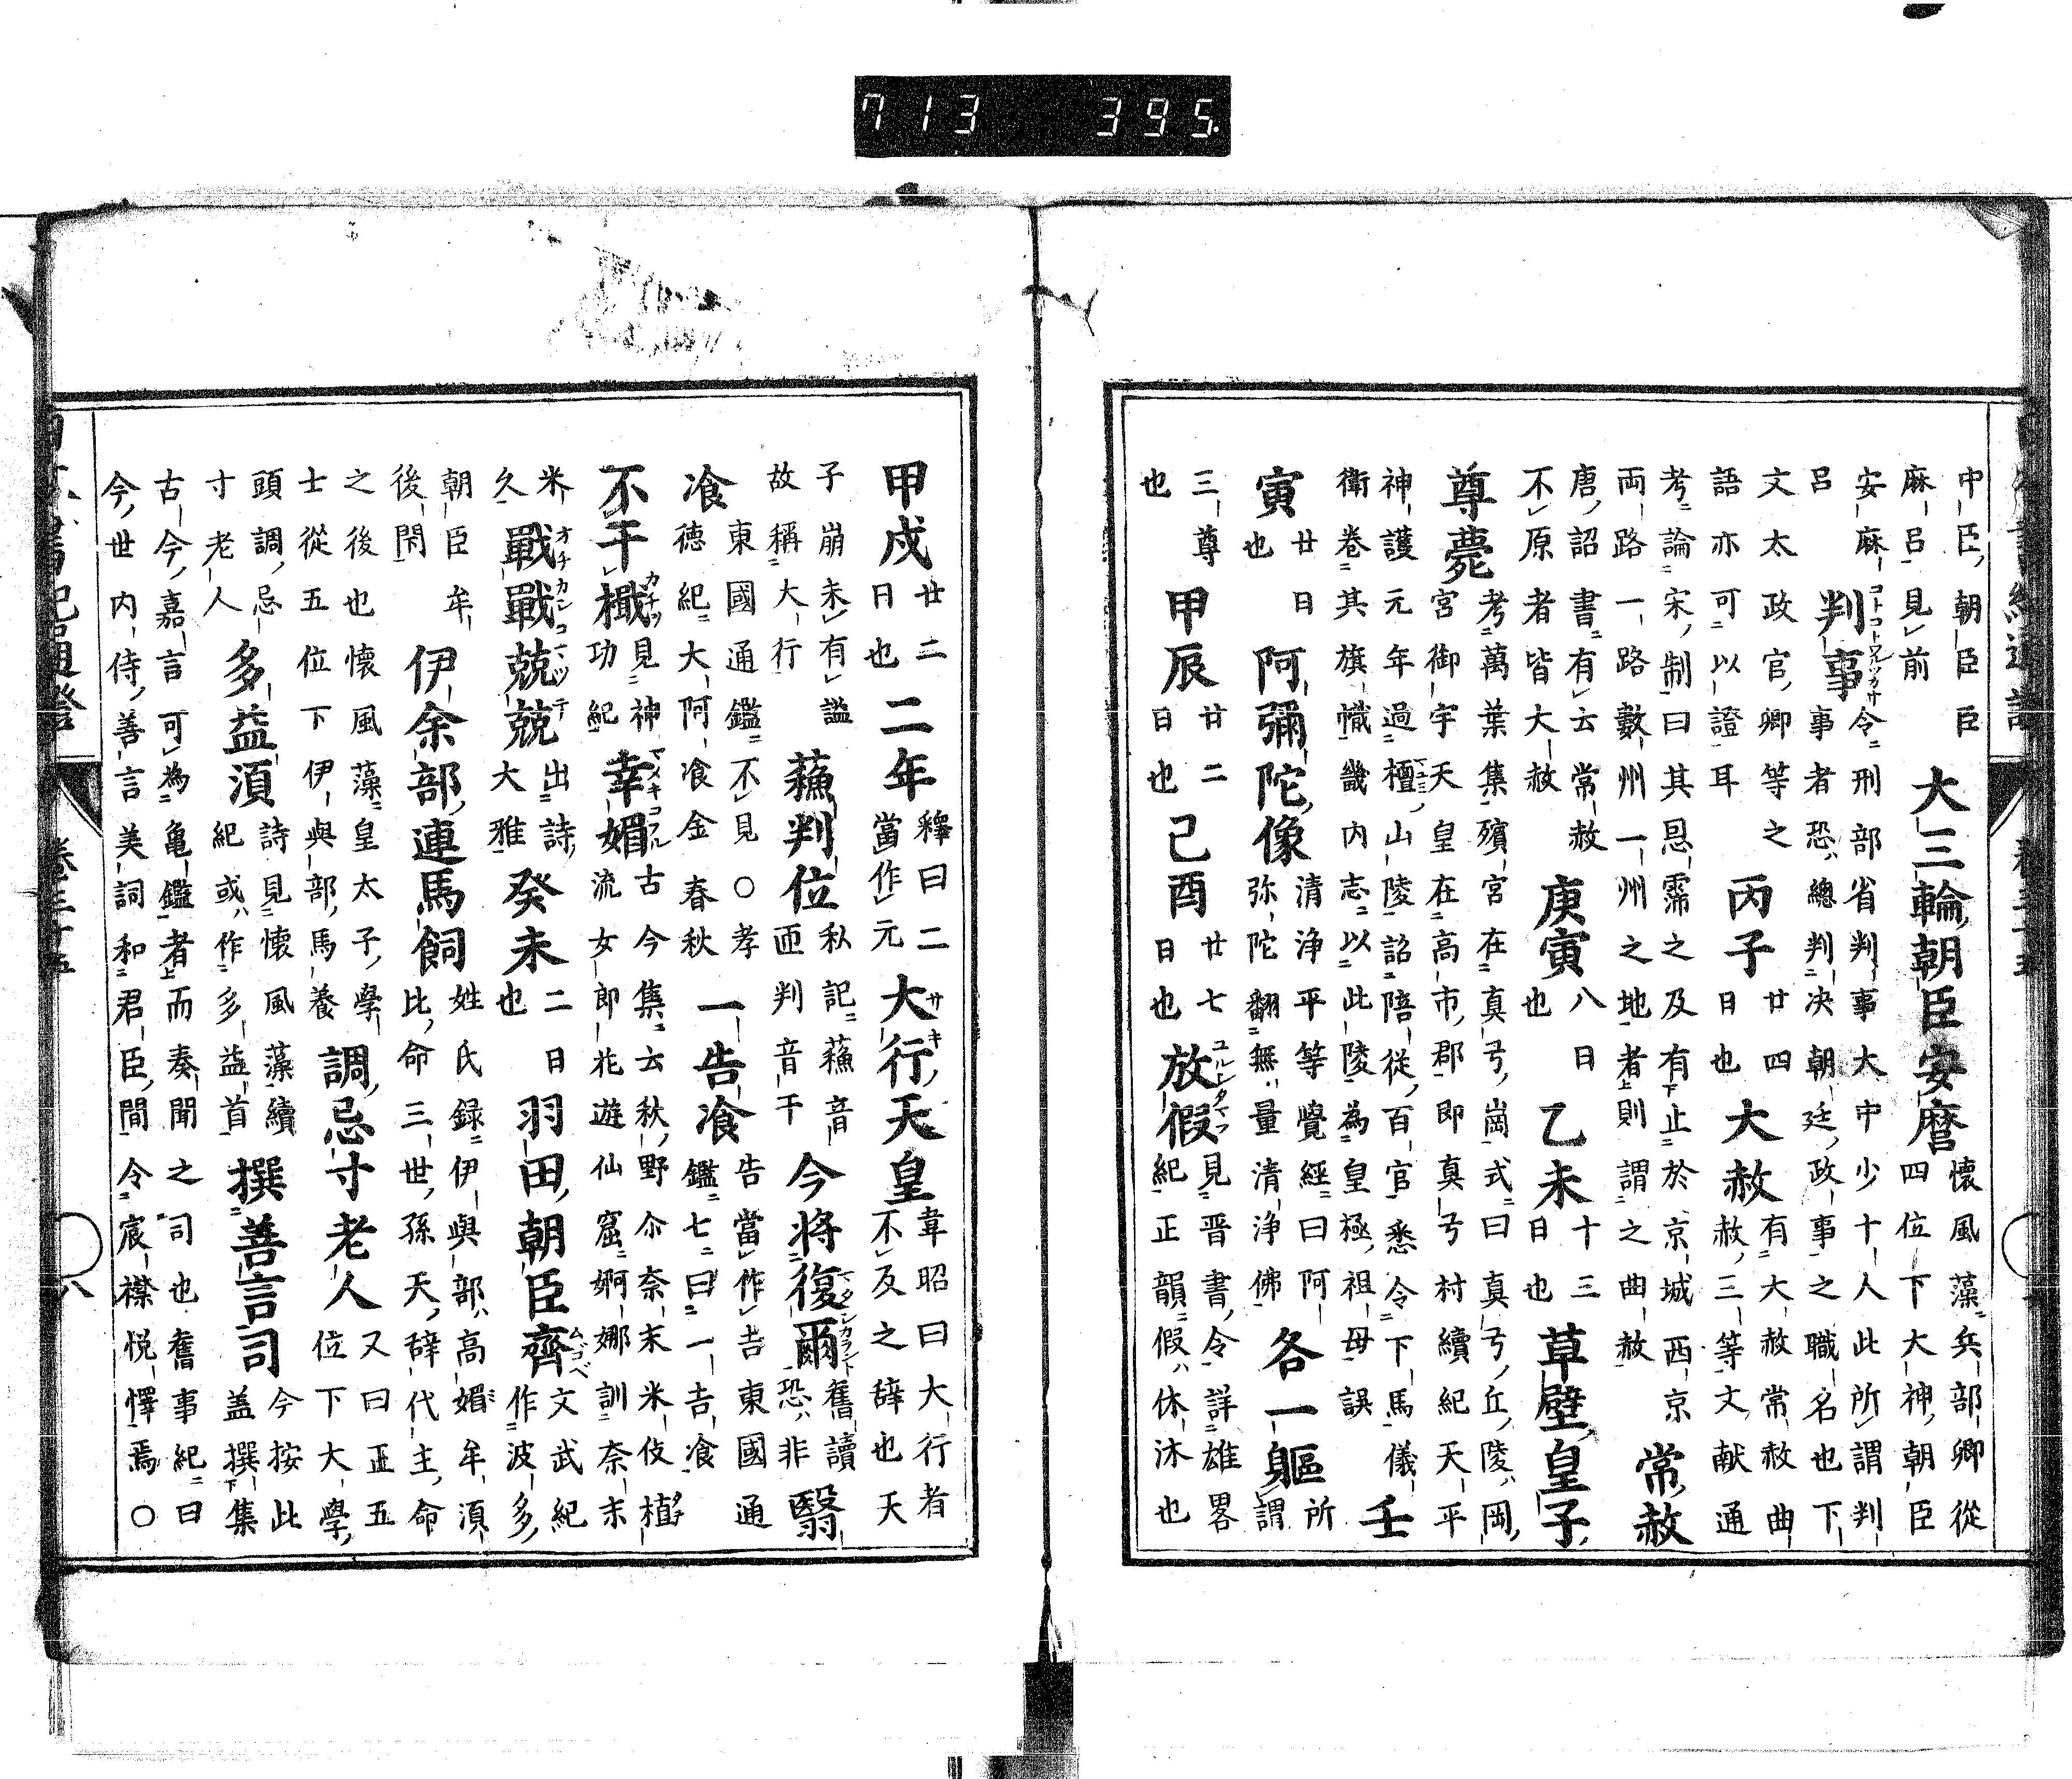 中臣朝臣臣麻呂見前大三輪朝臣安麿懷風藻兵部卿從四位下大神朝臣
安麻呂判事コトコトワルツカサ令刑部省判事大中少十人此所謂判事者恐總判决朝廷政事之職名也下
文太政官卿等之語亦可以證耳丙子廿四日也大赦有大赦常赦曲赦三等文献通
考論宋制曰其恩霈之及有止於京城西京両路一路數州一州之地者則謂之曲赦常赦
唐詔書有云常赦不原者皆大赦庚寅八日也乙未十三日也草壁皇子
尊薨考萬葉集殯宮在真弓崗式曰真弓丘陵岡宮御宇天皇在高市郡即真弓村續紀天平
神護元年過檀山陵詔陪從百官悉令下馬儀衛卷其旗幟畿内志以此陵為皇極祖母誤壬
寅廿日也阿彌陀像清浄平等覺經曰阿弥陀翻無量清浄佛各一軀所謂
三尊也甲辰廿二日也己酉廿七日也放假ユルシタマフ見晋書令詳雄畧紀正韻假休沐也
甲戌廿二日也二年釋曰二當作元大行サキ天皇韋昭曰大行者不反之辞也天
子崩未有謚故稱大行蘓判位私記蘓音匝判音干今將復爾舊讀恐非翳
飡東國通鑑不見○孝德紀大阿飡金春秋一告飡告當作吉東國通鑑七曰一吉飡
不干檝見神功紀幸媚古今集云秋野尒奈末米伎植流女郎花遊仙窟婀娜訓奈末
米久戰戰兢兢出詩大雅癸未二日也羽田朝臣齊文武紀作波多
朝臣牟後閇伊余部連馬飼姓氏録伊與部高媚牟湏比命三世孫天辞代主命
之後也懷風藻皇太子學士從五位下伊與部馬養調忌寸老人又曰正五位下大學
頭調忌寸老人多益湏詩見懷風藻續紀或作多益首撰善言司今按此盖撰集
古今嘉言可為亀鑑者而奏聞之司也舊事紀曰今世内侍善言美詞和君臣間令宸襟悦懌焉○
八
713 395